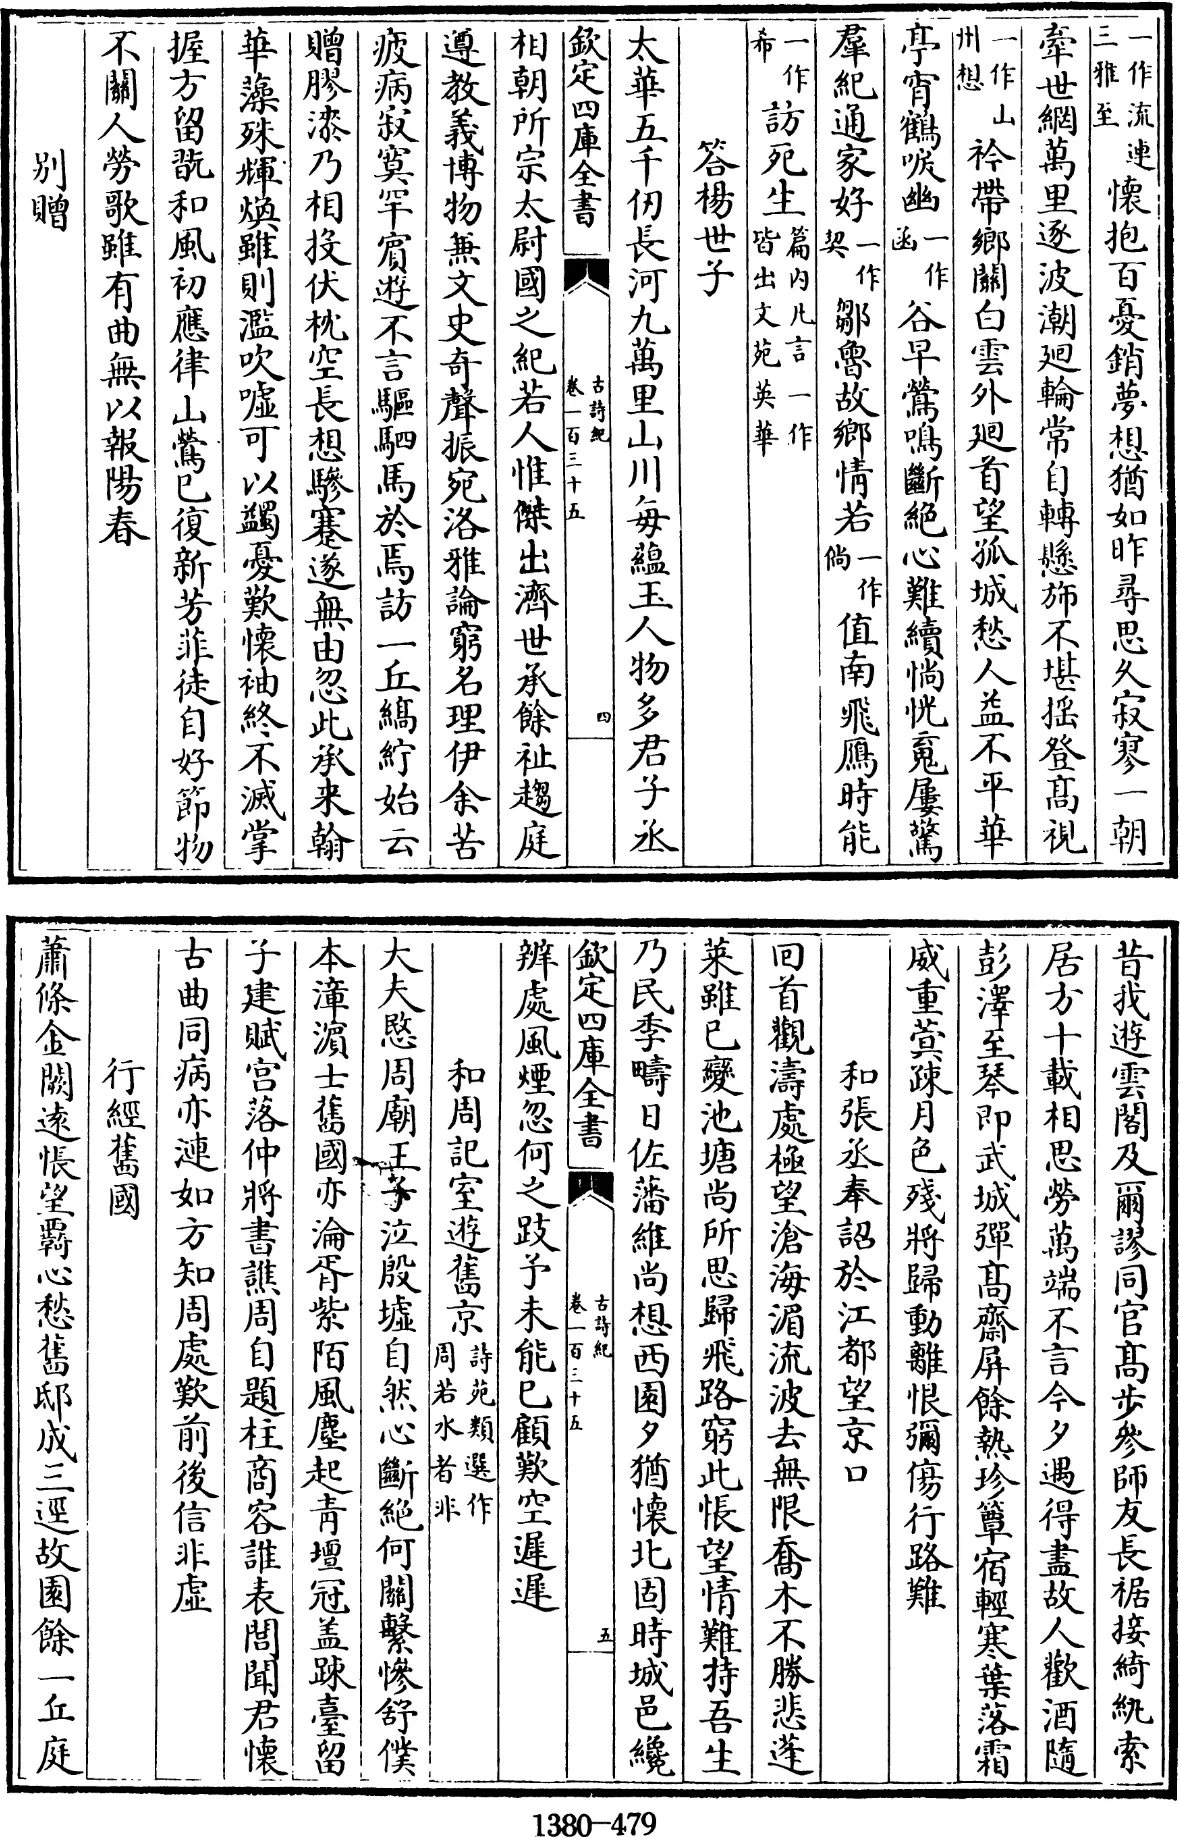 一作流連三雅至懷抱百憂銷夢想猶如昨尋思久寂寥一朝
牽世網萬里逐波潮廻輪常自轉懸斾不堪揺登髙視
一作山州想衿帶鄉關白雲外廻首望孤城愁人益不平華
亭宵鶴唳幽一作函谷早鶯鳴斷絶心難續惝恍䰟屢驚
羣紀通家好一作契鄒魯故鄉情若一作倘值南飛鴈時能
一作希訪死生篇内凡言一作皆出文苑英華
答楊世子
太華五千仞長河九萬里山川每蘊玉人物多君子丞
欽定四庫全書
古詩紀
卷一百三十五
四
相朝所宗太尉國之紀若人惟傑出濟世承餘祉趨庭
遵教義博物兼文史奇聲振宛洛雅論窮名理伊余苦
疲病寂寞罕賔遊不言驅駟馬於焉訪一丘縞紵始云
贈膠漆乃相投伏枕空長想驂蹇遂無由忽此承来翰
華藻殊輝煥雖則濫吹噓可以蠲憂歎懷袖終不滅掌
握方留翫和風初應律山鶯已復新芳菲徒自好節物
不關人勞歌雖有曲無以報陽春
别贈
昔我遊雲閣及爾謬同官髙步參師友長裾接綺紈索
居方十載相思勞萬端不言今夕遇得盡故人歡酒隨
彭澤至琴即武城彈髙齋屏餘熱珍簟宿輕寒葉落霜
威重蓂疎月色殘將歸動離恨彌傷行路難
和張丞奉詔於江都望京口
回首觀濤處極望滄海湄流波去無限喬木不勝悲蓬
萊雖已變池塘尚所思歸飛路窮此悵望情難持吾生
乃民季疇日佐藩維尚想西園夕猶懷北固時城邑纔
欽定四庫全書
古詩紀
卷一百三十五
五
辨處風煙忽何之跂予未能已顧歎空遲遲
和周記室遊舊京詩苑類選作周若水者非
大夫愍周廟王子泣殷墟自然心斷絶何關繫慘舒僕
本漳濵士舊國亦淪胥紫陌風塵起青壇冠盖疎臺留
子建賦宫落仲將書譙周自題柱商容誰表閭聞君懷
古曲同病亦漣如方知周處歎前後信非虚
行經舊國
蕭條金闕遠悵望羇心愁舊邸成三逕故園餘一丘庭
1380-479